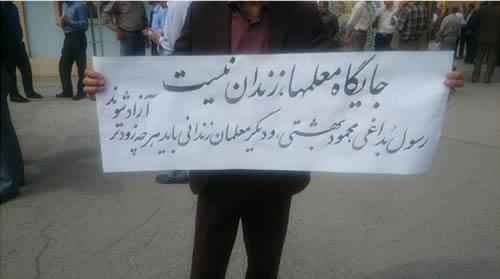 جایگاه معلمها، زندان نیست
رسول بُداغی، محمود بهشتی، و دیگر معلمان زندانی باید هر چه زودتر
آزاد شوند